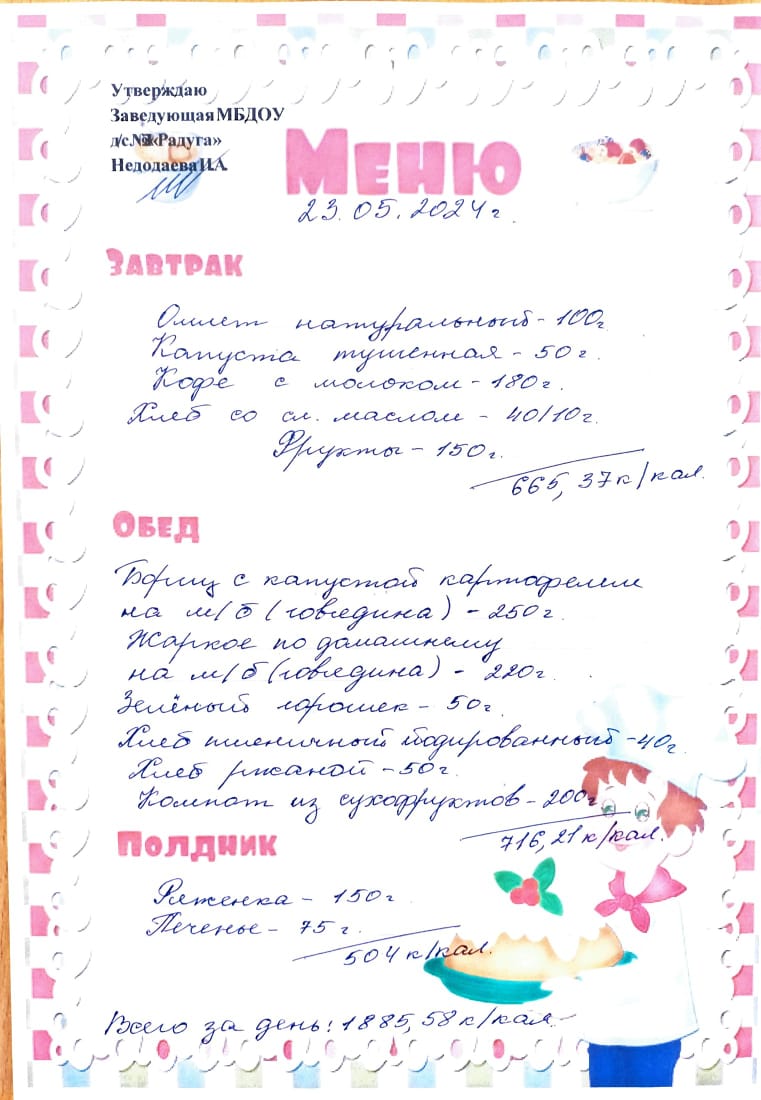 Утверждаю
Заведующая МБДОУ
д/с «Радуга»
Недодаева И.А.
Меню
23.05.2024г.
Завтрак
Омлет натуральный - 100г
Капуста тушенная - 50г.
Кофе с молоком - 180г.
Хлеб со сл. маслом - 40/10г.
Фрукты - 150г.
665,37 к/кал.
Обед
Борщ с капустой картофелем
на м/б (говядина) - 250г.
Жаркое по домашнему
на м/б (говядина) - 220г.
Зелёный горошек - 50г.
Хлеб пшеничный йодированный - 40г.
Хлеб ржаной - 50г.
Компот из сухофруктов - 200г
716,21 к/кал.
Полдник
Ряженка - 150г
Печенье - 75г.
504 к/кал.
Всего за день: 1885,58 к/кал.-